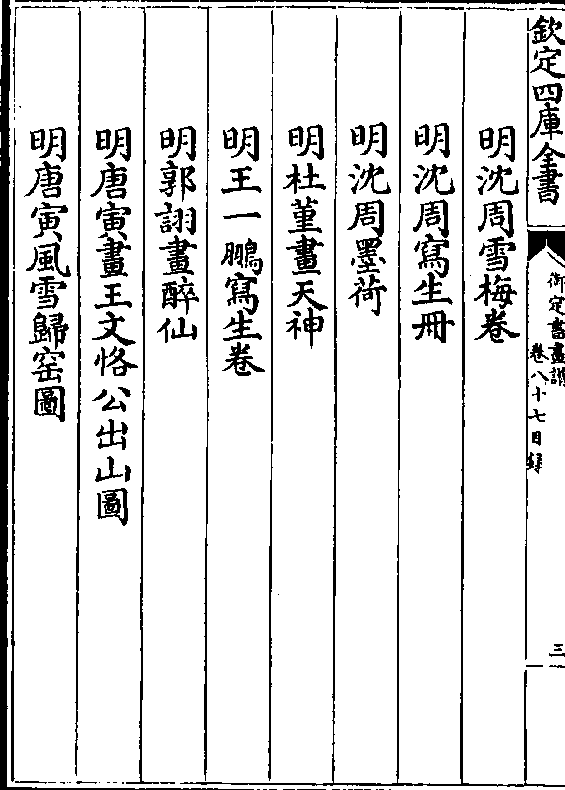 欽定四庫全書
御定書畫譜
卷八十七目録
三
明沈周雪梅卷
明沈周寫生冊
明沈周墨荷
明杜堇畫天神
明王一鵬寫生卷
明郭詡畫醉仙
明唐寅畫王文恪公出山圖
明唐寅風雪歸窑圖